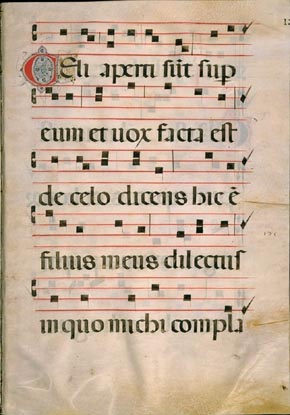 Celi aperti sūt sup
eum et uox facta est
de celo dicens hic ē
filius meus dilectus
in quo michi compla